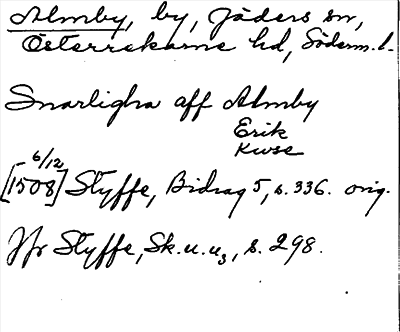 Almby, by, Jäders sn,
Österrekarne hd, Söderm. l.
Snarligha aff Almby
Erik
Kuse
6/12
[1508] Styffe, Bidrag 5, s. 336. orig.
Jfr Styffe, Sk. u. u3, s. 298.